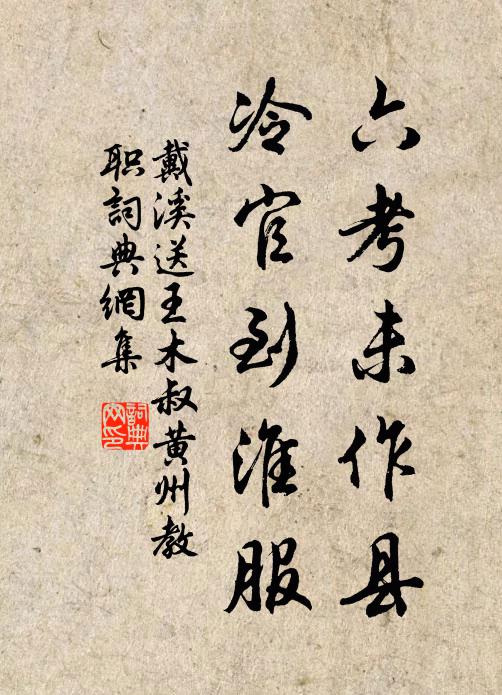 六考未作县
冷官到淮服
戴溪送王木叔黄州教
职词典網集
詞典
网印